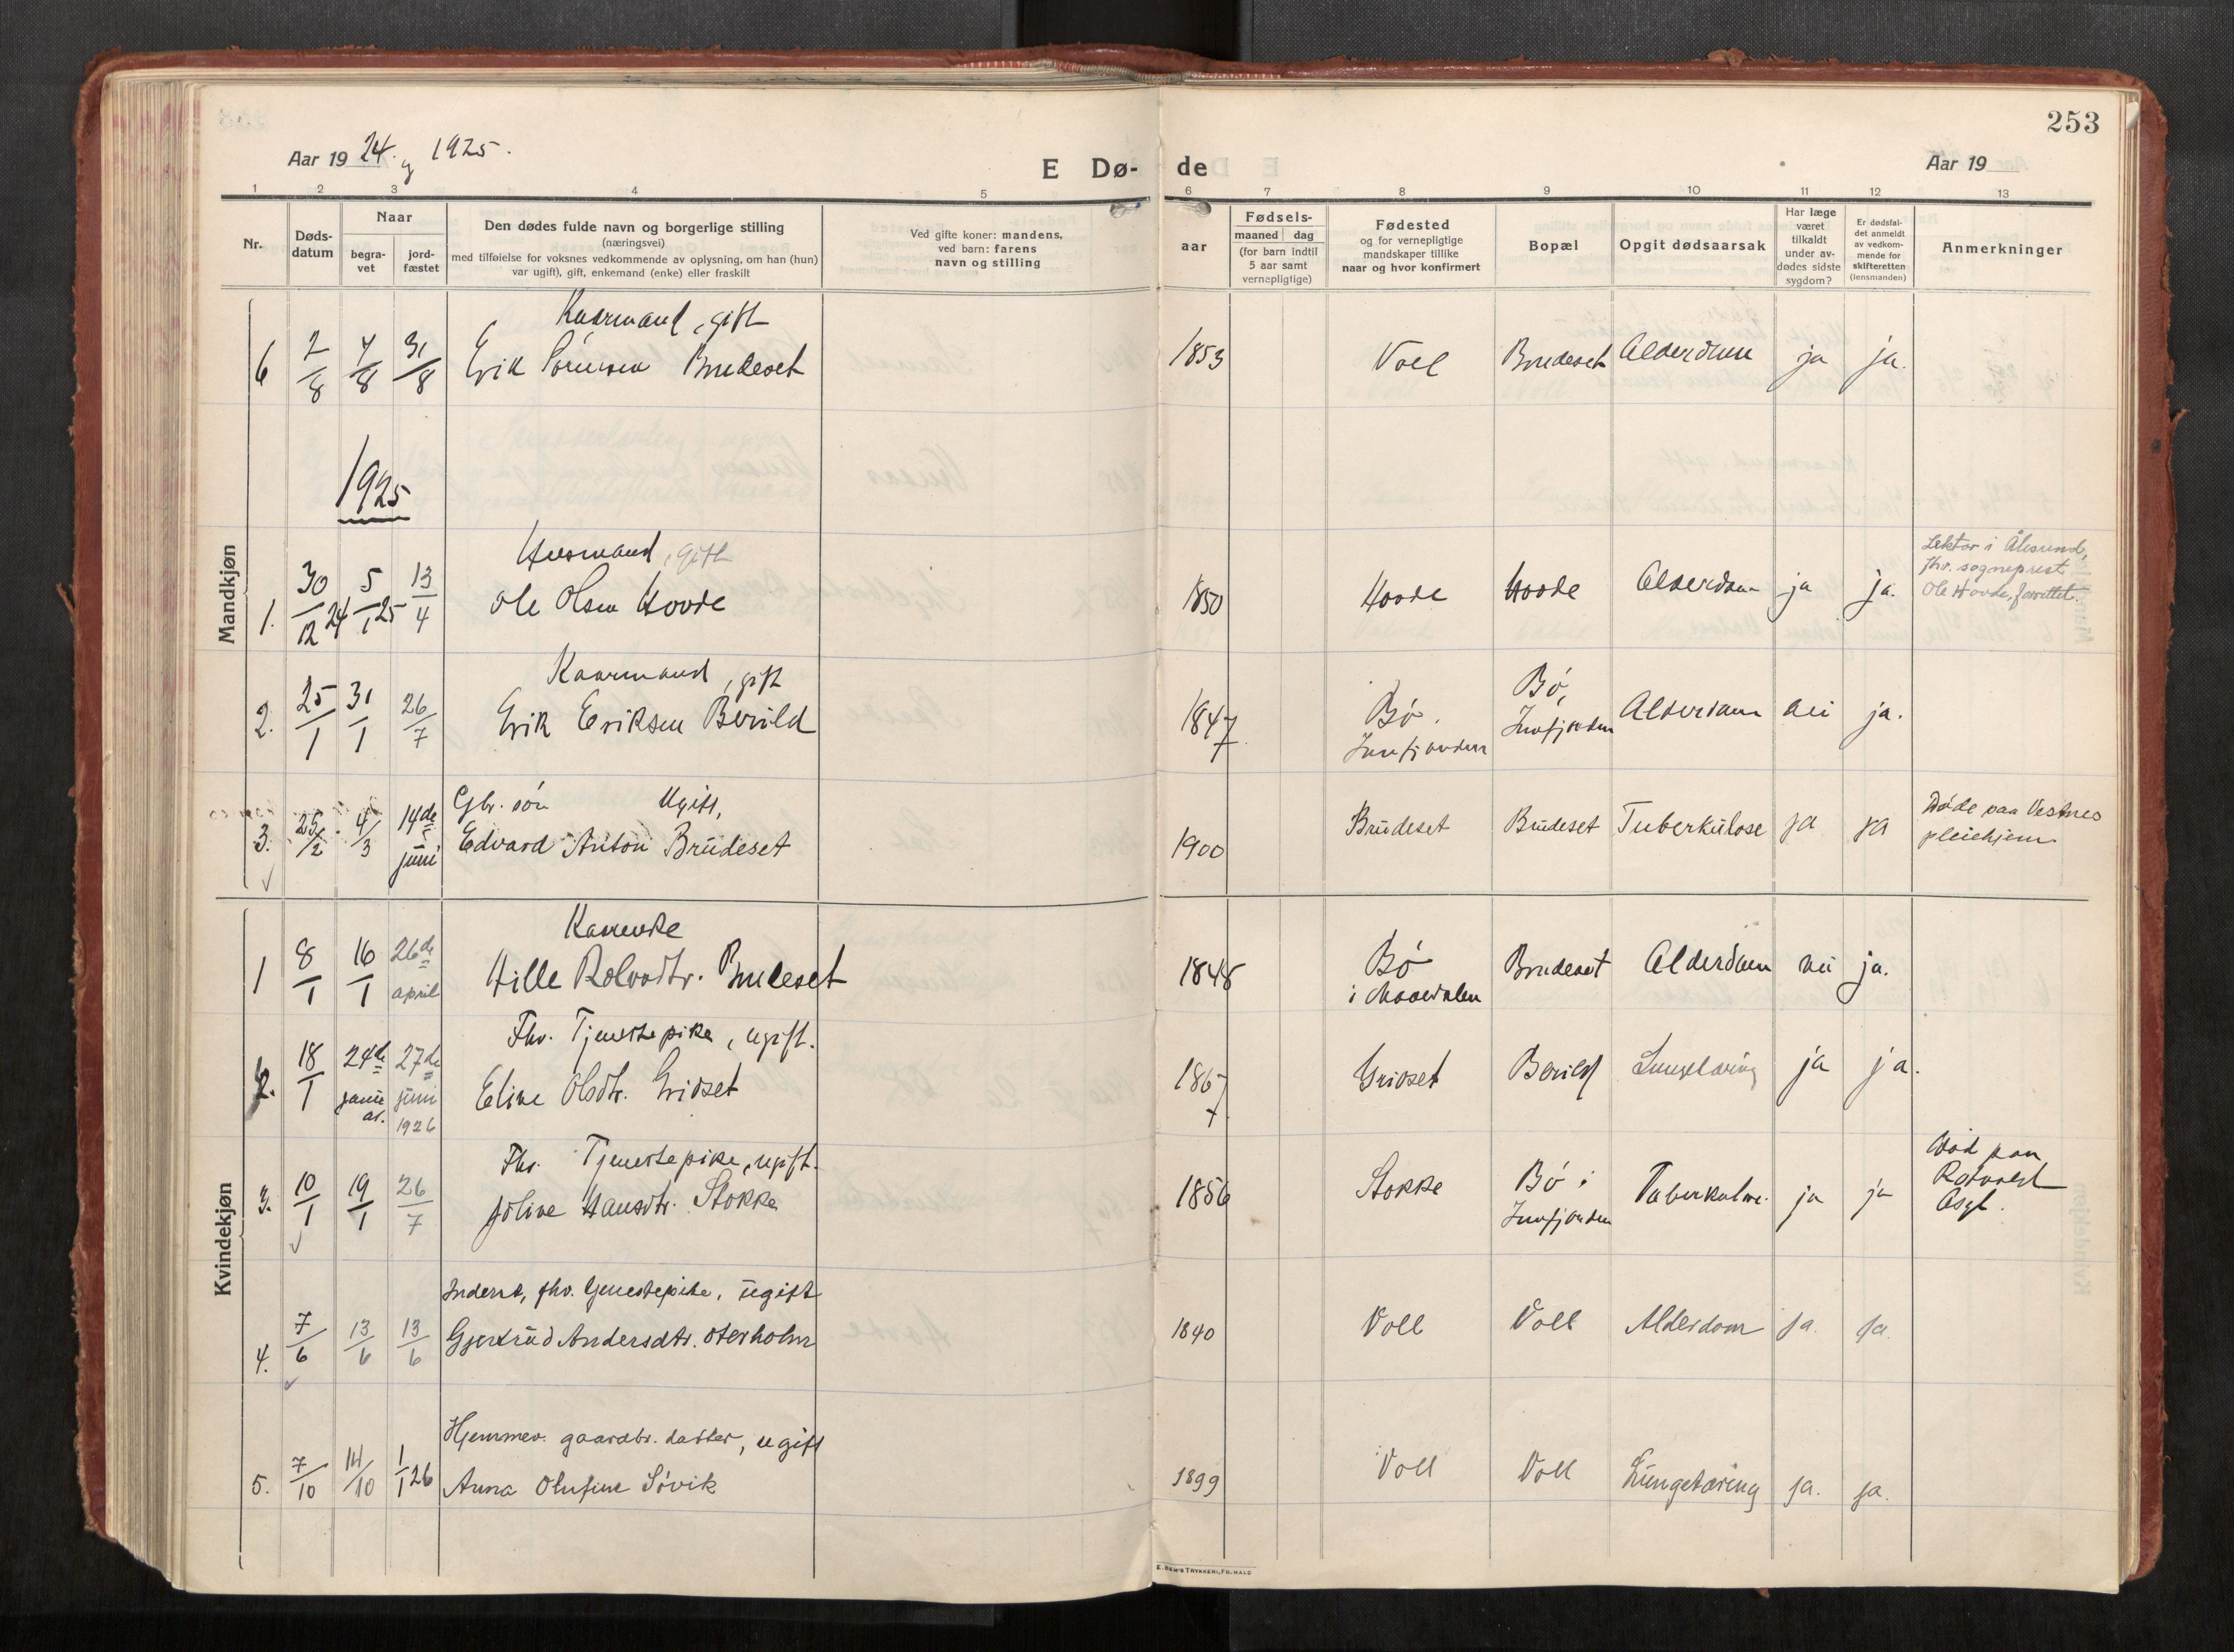 253
Aar 19 24. og 1925.
E Dø-
de
Aar 19
1 2 3 4 5 6 7 8 9 10 11 12 13
Nr.
Døds-
datum
Naar
begra-
vet
jord-
fæstet
Den dødes fulde navn og borgerlige stilling
(næringsvei)
med tilføielse for voksnes vedkommende av oplysning, om han (hun)
var ugift), gift, enkemand (enke) eller fraskilt
Ved gifte koner: mandens,
ved barn: farens
navn og stilling
aar
Fødsels-
maaned dag
(for barn indtil
5 aar samt
vernepligtige)
Fødested
og for vernepligtige
mandskaper tillike
naar og hvor konfirmert
Bopæl
Opgit dødsaarsak
Har læge
været
tilkaldt
under av-
dødes sidste
sygdom?
Er dødsfal-
det anmeldt
av vedkom-
mende for
skifteretten
(lensmanden)
Anmerkninger
Mandkjøn
Kaarmand, gift
6 2/8 4/8 31/8 Erik Sørensen Brudeset 1853 Voll Brudeset Alderdom ja ja.
1925
Husmand, gift
1. 30/12 24 5/1 25 13/4 Ole Olsen Hovde 1850 Hovde Hovde Alderdom ja ja.
Lektor i Ålesund,
fhv. sogneprest
Ole Hovde, forrettet.
Kaarmand, gift
2. 25/1 31/1 26/7 Erik Eriksen Berild 1847 Bø. Innfjorden Bø, Innfjorden Alderdom nei ja.
Gbr. søn Ugift,
3. 25/2 4/3 14de juni Edvard Anton Brudeset 1900 Brudeset Brudeset Tuberkulose ja ja
Døde paa Vestnes
pleiehjem
Kvindekjøn
Kaarenke
1 8/1 16/1 26de april Hille Brudeset 1848 Bø i Brudeset Alderdom nei ja.
Fhv. Tjenestepike, ugift.
2. 18/1 24de januar. 27de juni 1926 Eline Olsdtr. Gridset 1867 Gridset Berild Lungetæring ja ja.
Fhv. Tjenestepike, ugift.
3. 10/1 19/1 26/7 Joline Hansdtr. Stokke 1856 Stokke Bø i Innfjorden Tuberkulose. ja ja
Død paa
Asyl.
Inderst, fhv. tjenestepike, ugift
4. 7/6 13/6 13/6 Gjertrud Andersdtr. Oterholm 1840 Voll Voll Alderdom ja. ja.
Hjemmev. gaardbr. datter, ugift
5. 7/10 14/10 1/1 26 Anna Olufine Søvik 1899 Voll Voll Lungetæring ja. ja.
E. SEM'S TRYKKERI, FR. HALD